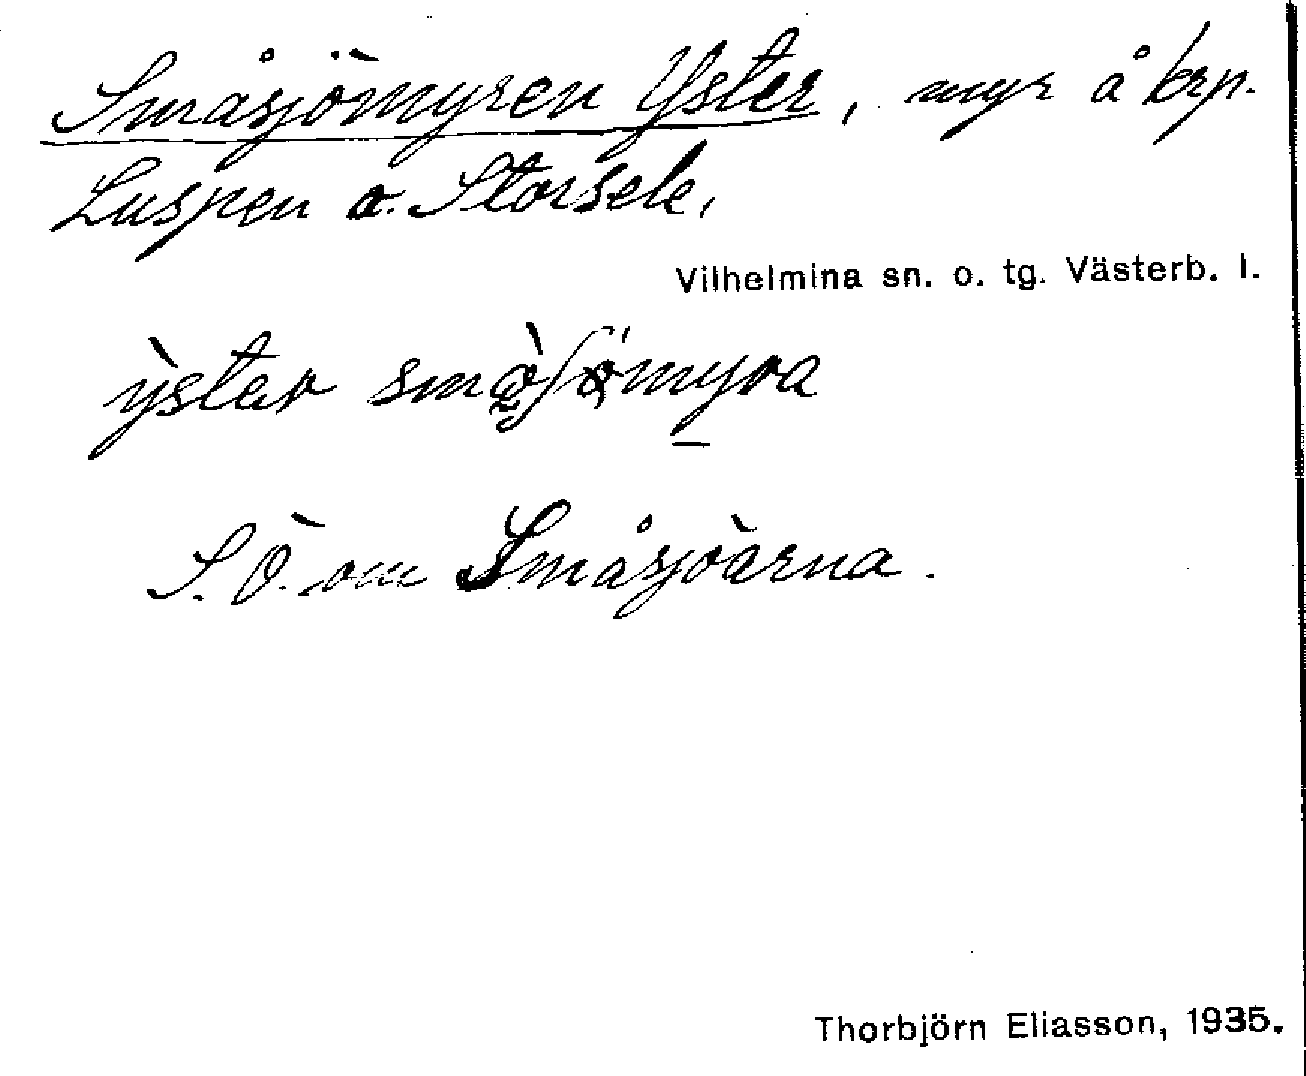 Småsjömyren Yster, myr å krp.
Luspen o. Storsele,
Vilhelmina sn. o. tg. Västerb. l.
ỳster
S.Ö. om Småsjöarna.
Thorbjörn Eliasson, 1935.